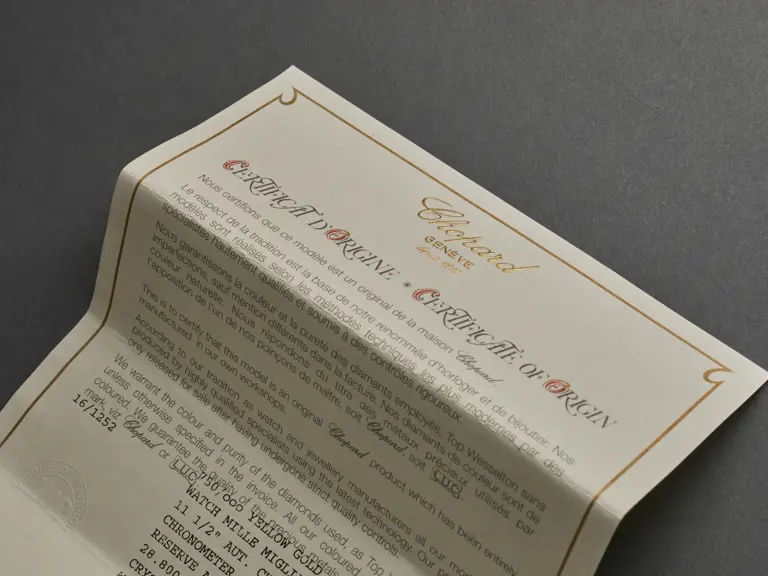 Chopard
GENÈVE
CERTIFICAT D'ORIGINE * CERTIFICATE OF ORIGIN
Nous certifions que ce modèle est un original de la maison Chopard.
Le respect de la tradition est la base de notre renommée d'horloger et de bijoutier. Nos
modèles sont réalisés selon les méthodes techniques les plus modernes par des
spécialistes hautement qualifiés et soumis à des contrôles rigoureux.
Nous garantissons la couleur et la pureté des diamants employés, Top Wesselton sans
imperfections, sauf mention différente dans la facture. Nos diamants de couleur sont de
couleur naturelle. Nous répondons du titre des métaux précieux utilisés par
l'apposition de l'un de nos poinçons de maître, soit Chopard, soit L.U.C
This is to certify that this model is an original Chopard product which has been entirely
manufactured in our own workshops.
According to our tradition as watch and jewellery manufacturers all our
produced by highly qualified specialists using the latest technology. Our
only released for sale after having undergone strict quality controls.
We warrant the colour and purity of the diamonds used, as Top
unless otherwise specified in the invoice. All our coloured
coloured. We guarantee the quality of the precious metals
mark, viz. Chopard or L.U.C
16/1252
750/000 YELLOW GOLD
WATCH MILLE MIGLI
11 1/2" AUT.
CHRONOMETER
RESERVE
28.800